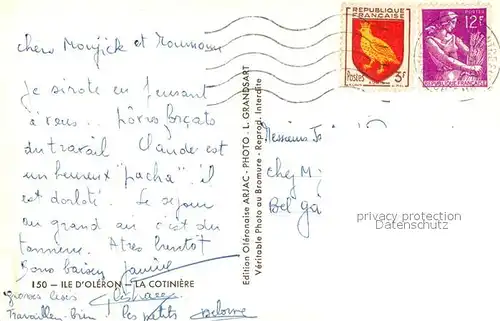 REPUBLIQUE
FRANÇAISE
Postes
3F
POSTES
12F
REPUBLIQUE FRANÇAISE
cher Moujick et
Je sirote en pensant
à vous...
du travail Claude est
un heureux "pacha" il
est dorloté. Le séjour
au grand air c'est du
tonnerre. A très bientôt
Bons baisers Janine
150 — ILE D'OLÉRON — LA COTINIÈRE
grosses bises
Travaillez bien les petits
Edition Oléronaise ARJAC - PHOTO - L. GRANDSART
Véritable Photo au Bromure - Reprod. Interdite
Messieurs
chez M
Bel
privacy protection
Datenschutz